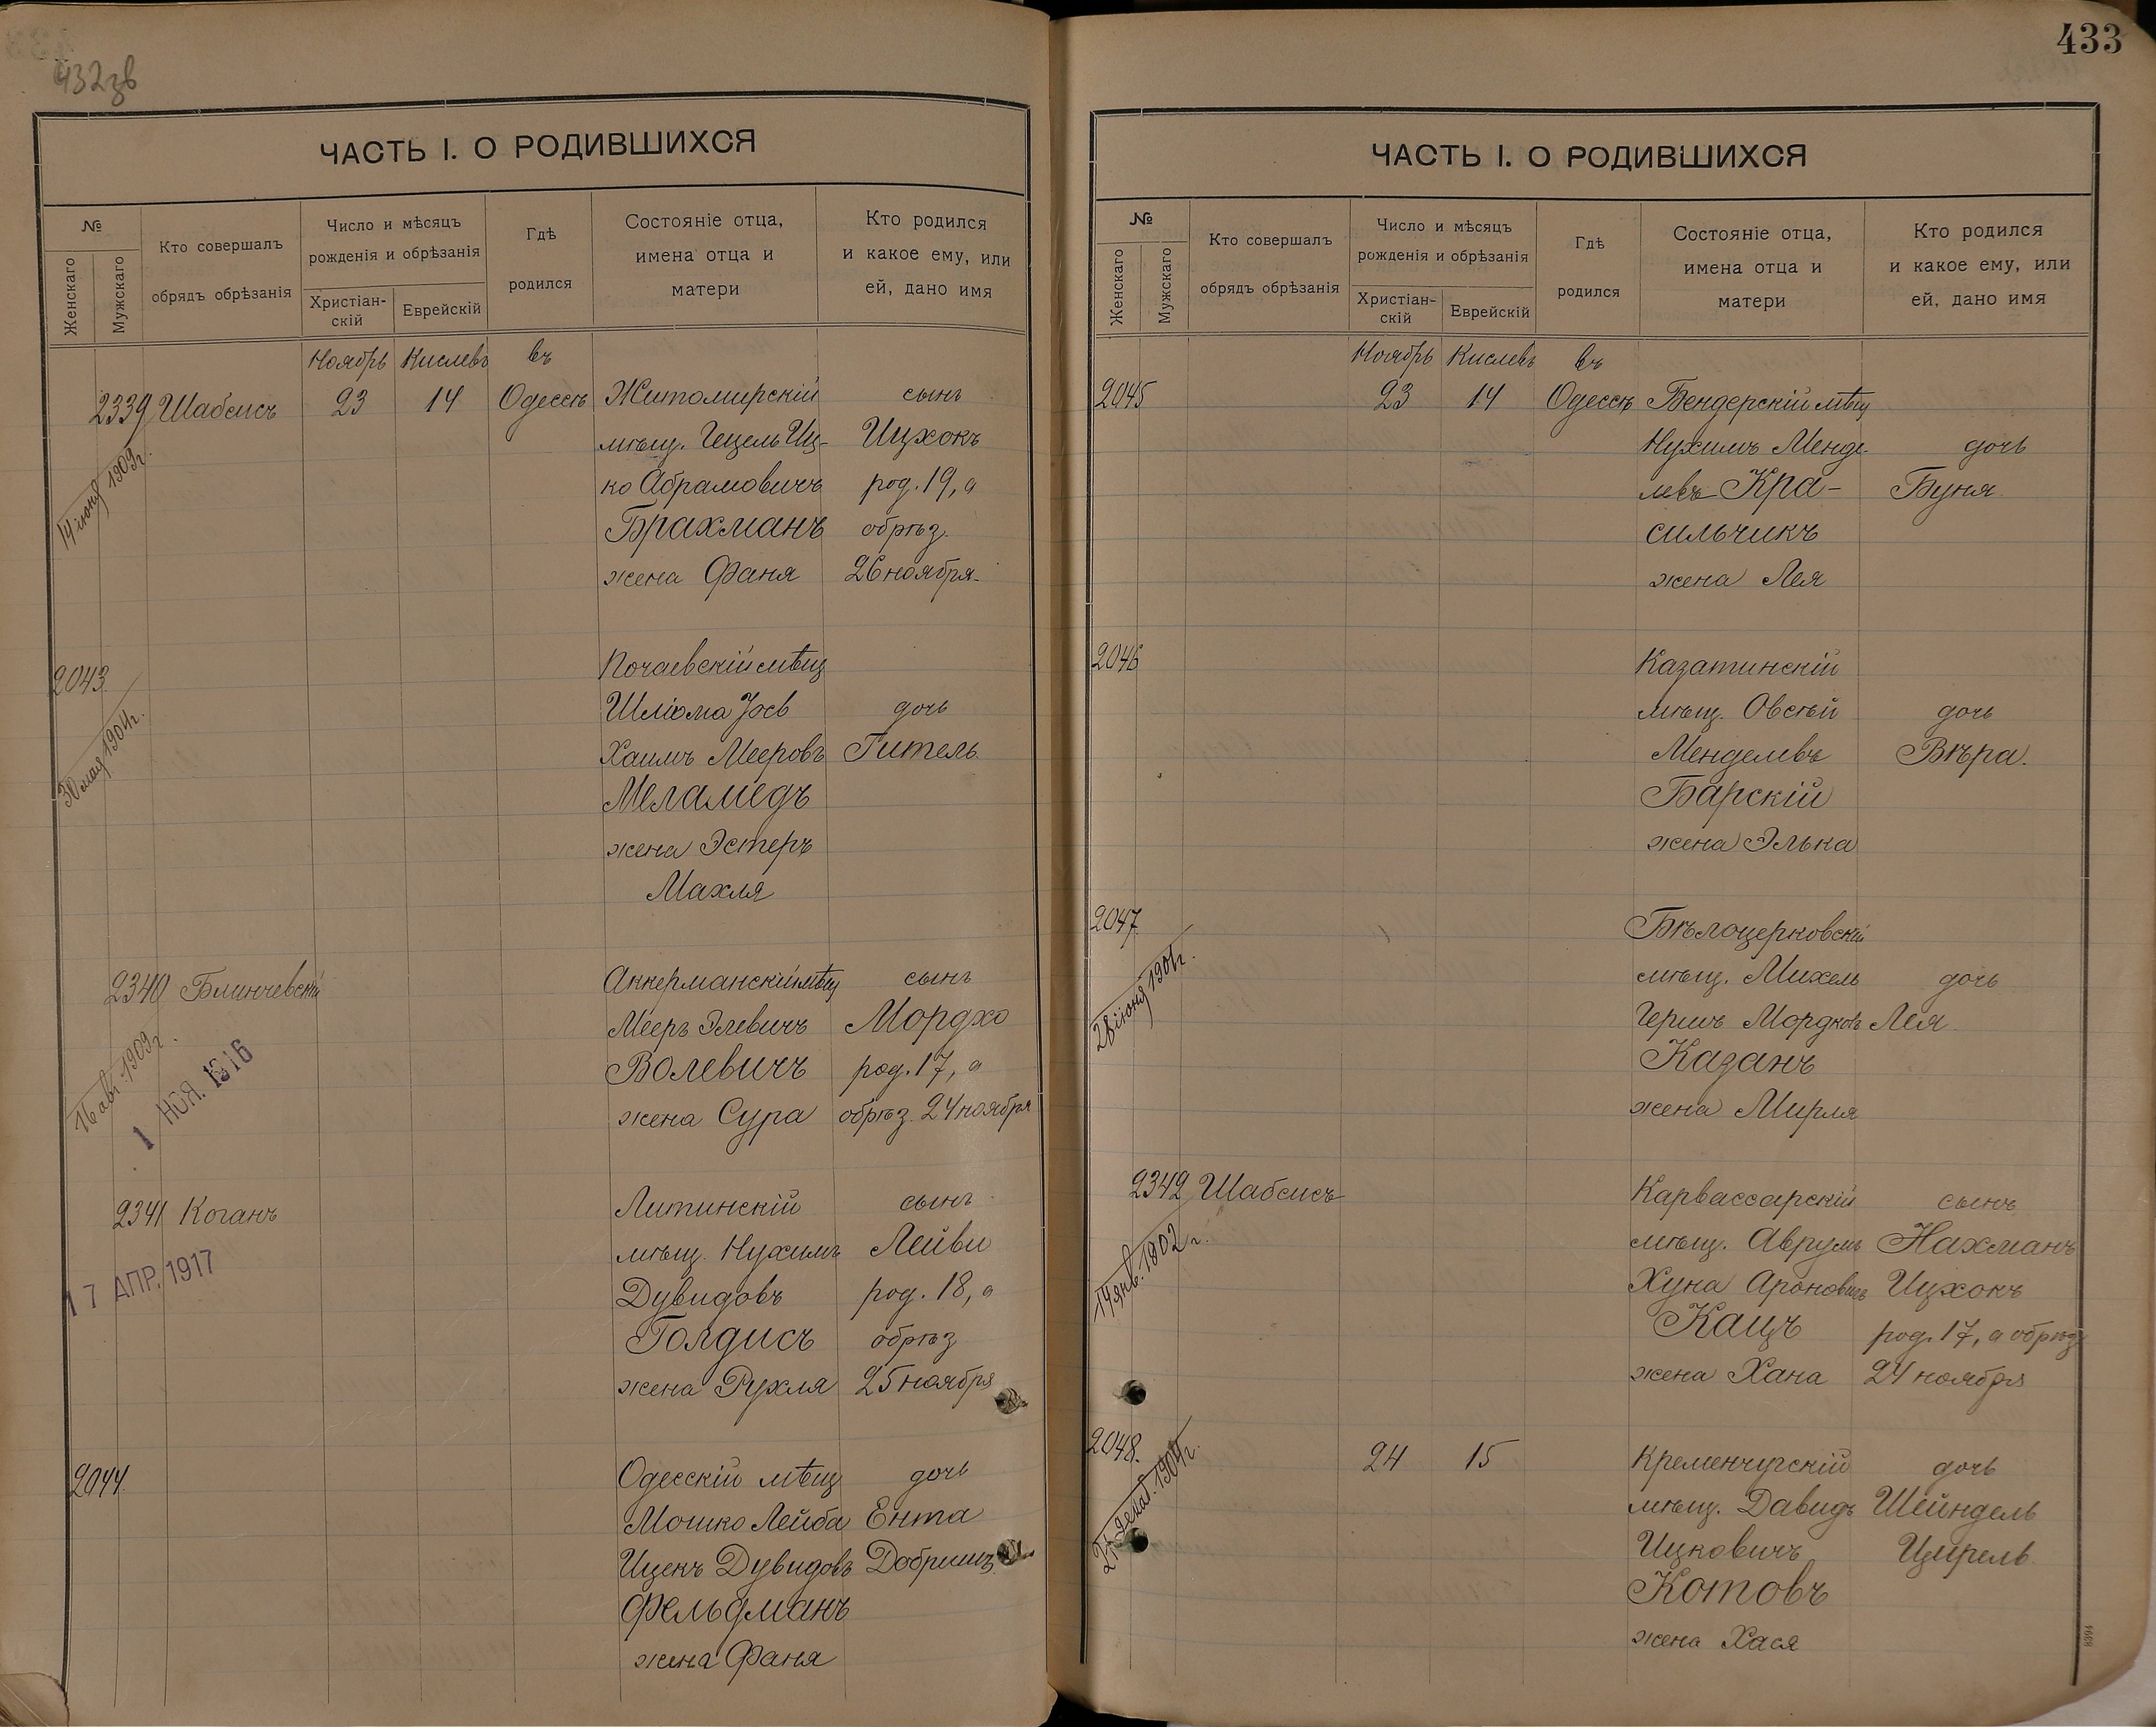 432зв
ЧАСТЬ I. О РОДИВШИХСЯ
№
Женскаго
Мужскаго
Кто совершалъ
обрядъ обрѣзанія
Число и мѣсяцъ
рожденія и обрѣзанія
Христіан-
скій
Еврейскій
Гдѣ
родился
Состояніе отца,
имена отца и
матери
Кто родился
и какое ему, или
ей, дано имя
Ноябрь Кислевъ въ
2339 Шабсисъ 23 14 Одессѣ Житомирскій сынъ
мѣщ. Гецель Иц- Ицхокъ
ко Абрамовичъ род. 19, а
14 іюня 1909г.
Брахманъ обрѣз.
жена Фаня 26 ноября
Почаевскій мѣщ
2043
Шліома Іосъ дочь
30 мая 1904г.
Хаимъ Мееровъ Гитель
Меламедъ
жена Эстеръ
Махля
2340 Блинчевскій Аккерманскій мѣщ сынъ
Мееръ Элевичъ Мордхо
16 авг. 1909г.
1 НОЯ. 1916
Волевичъ род. 17, а
жена Сура обрѣз. 24 ноября
2341 Коганъ Литинскій сынъ
мѣщ. Нухимъ Лейви
17 АПР. 1917
Дувидовъ род. 18, а
Голдисъ обрѣз
жена Рухля 25 ноября
2044 Одесскій мѣщ дочь
Мошко Лейба Ента
Ицекъ Дувидовъ Добришъ
Фельдманъ
жена Фаня
433
ЧАСТЬ I. О РОДИВШИХСЯ
№
Женскаго
Мужскаго
Кто совершалъ
обрядъ обрѣзанія
Число и мѣсяцъ
рожденія и обрѣзанія
Христіан-
скій
Еврейскій
Гдѣ
родился
Состояніе отца,
имена отца и
матери
Кто родился
и какое ему, или
ей, дано имя
Ноябрь Кислевъ въ
2045 23 14 Одессѣ Бендерскій мѣщ
Нухимъ Менде- дочь
левъ Кра- Буня
сильчикъ
жена Лея
2046 Казатинскій
мѣщ. Овсѣй дочь
Менделевъ Вѣра.
Барскій
жена Элька
2047 Бѣлоцерковскій
28 іюня 1901г.
мѣщ. Михель дочь
Гершъ Мордковъ Лея
Казанъ
жена Мирля
2342 Шабсисъ Карвассарскій сынъ
14 янв. 1902 г.
мѣщ. Аврумъ Нахманъ
Хуна Ароновичъ Ицхокъ
Кацъ род. 17, а обрѣз
жена Хана 24 ноября
2048. 24 15 Кременчугскій дочь
мѣщ. Давидъ Шейндель
Ицковичъ Цирель
Котовъ
жена Хася
8394